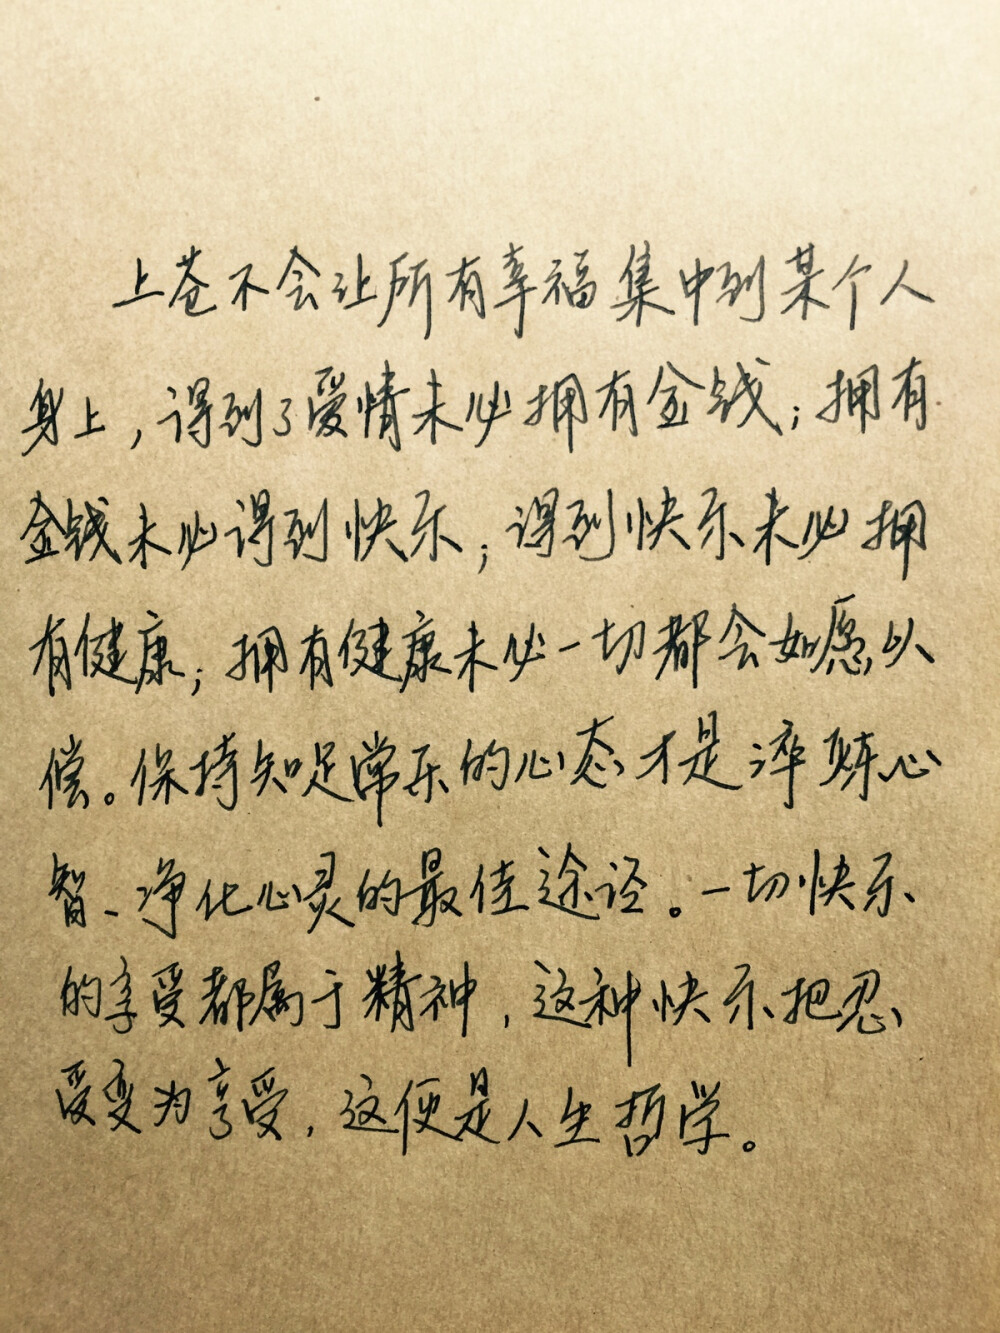 上苍不会让所有幸福集中到某个人
身上，得到了爱情未必拥有金钱；拥有
金钱未必得到快乐；得到快乐未必拥
有健康；拥有健康未必一切都会如愿以
偿。保持知足常乐的心态才是淬炼心
智、净化心灵的最佳途径。一切快乐
的享受都属于精神，这种快乐把忍
受变为享受，这便是人生哲学。